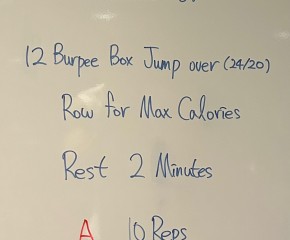 12 Burpee Box Jump over (24/20)
Row for Max Calories
Rest 2 Minutes
A 10 Reps